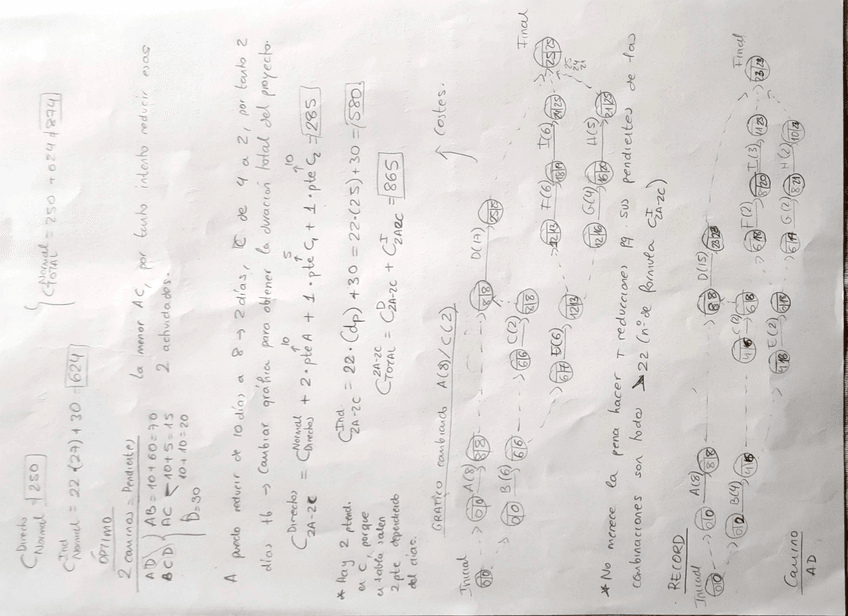 C Directo Normal = 250
C Ind Normal = 22·(27)+30 = 624
C Normal TOTAL = 250 + 624 = 874
ÓPTIMO
2 caminos = Pendientes
AD } AB = 10+60=70
BCD } AC 10+5=15
10+10=20
D=30
la menor AC, por tanto intento reducir esas
2 actividades.
A puedo reducir de 10 días a 8 → 2 días, C de 4 a 2, por tanto 2
días tb → Cambiar gráfica para obtener la duración total del proyecto.
C Directo 2A-2C = C Normal Directos + 2·pte A + 1·pte C1 + 1·pte C2 = 285
10 5 10
* Hay 2 ptend.
en C, porque
en tabla salen
2 pte dependiendo
del días.
C Ind 2A-2C = 22·(dp)+30 = 22·(25)+30 = 580
C 2A-2C TOTAL = C D 2A-2C + C I 2A2C = 865
GRÁFICO cambiando A(8)/C(2)
Costes.
Inicial
0 0 A(8) 8 8
8 8 D(17) 25 25
Final
25 25
0 0 B(6) 6 6
6 6 C(2) 8 8
E(6) 12 13
12 13 F(6) 18 19
I(6)
12 16 G(4) 16 20
H(5) 21 25
25
24
21
* No merece la pena hacer + reducciones pq. sus pendientes de las
combinaciones son todas > 22 (nº de formula C I 2A-2C)
RECORD
Inicial
0 0 A(8) 8 8
8 8 D(15) 23 23
Final
B(4)
E(2)
F(2)
I(3)
G(2)
H(2)
Camino
AD